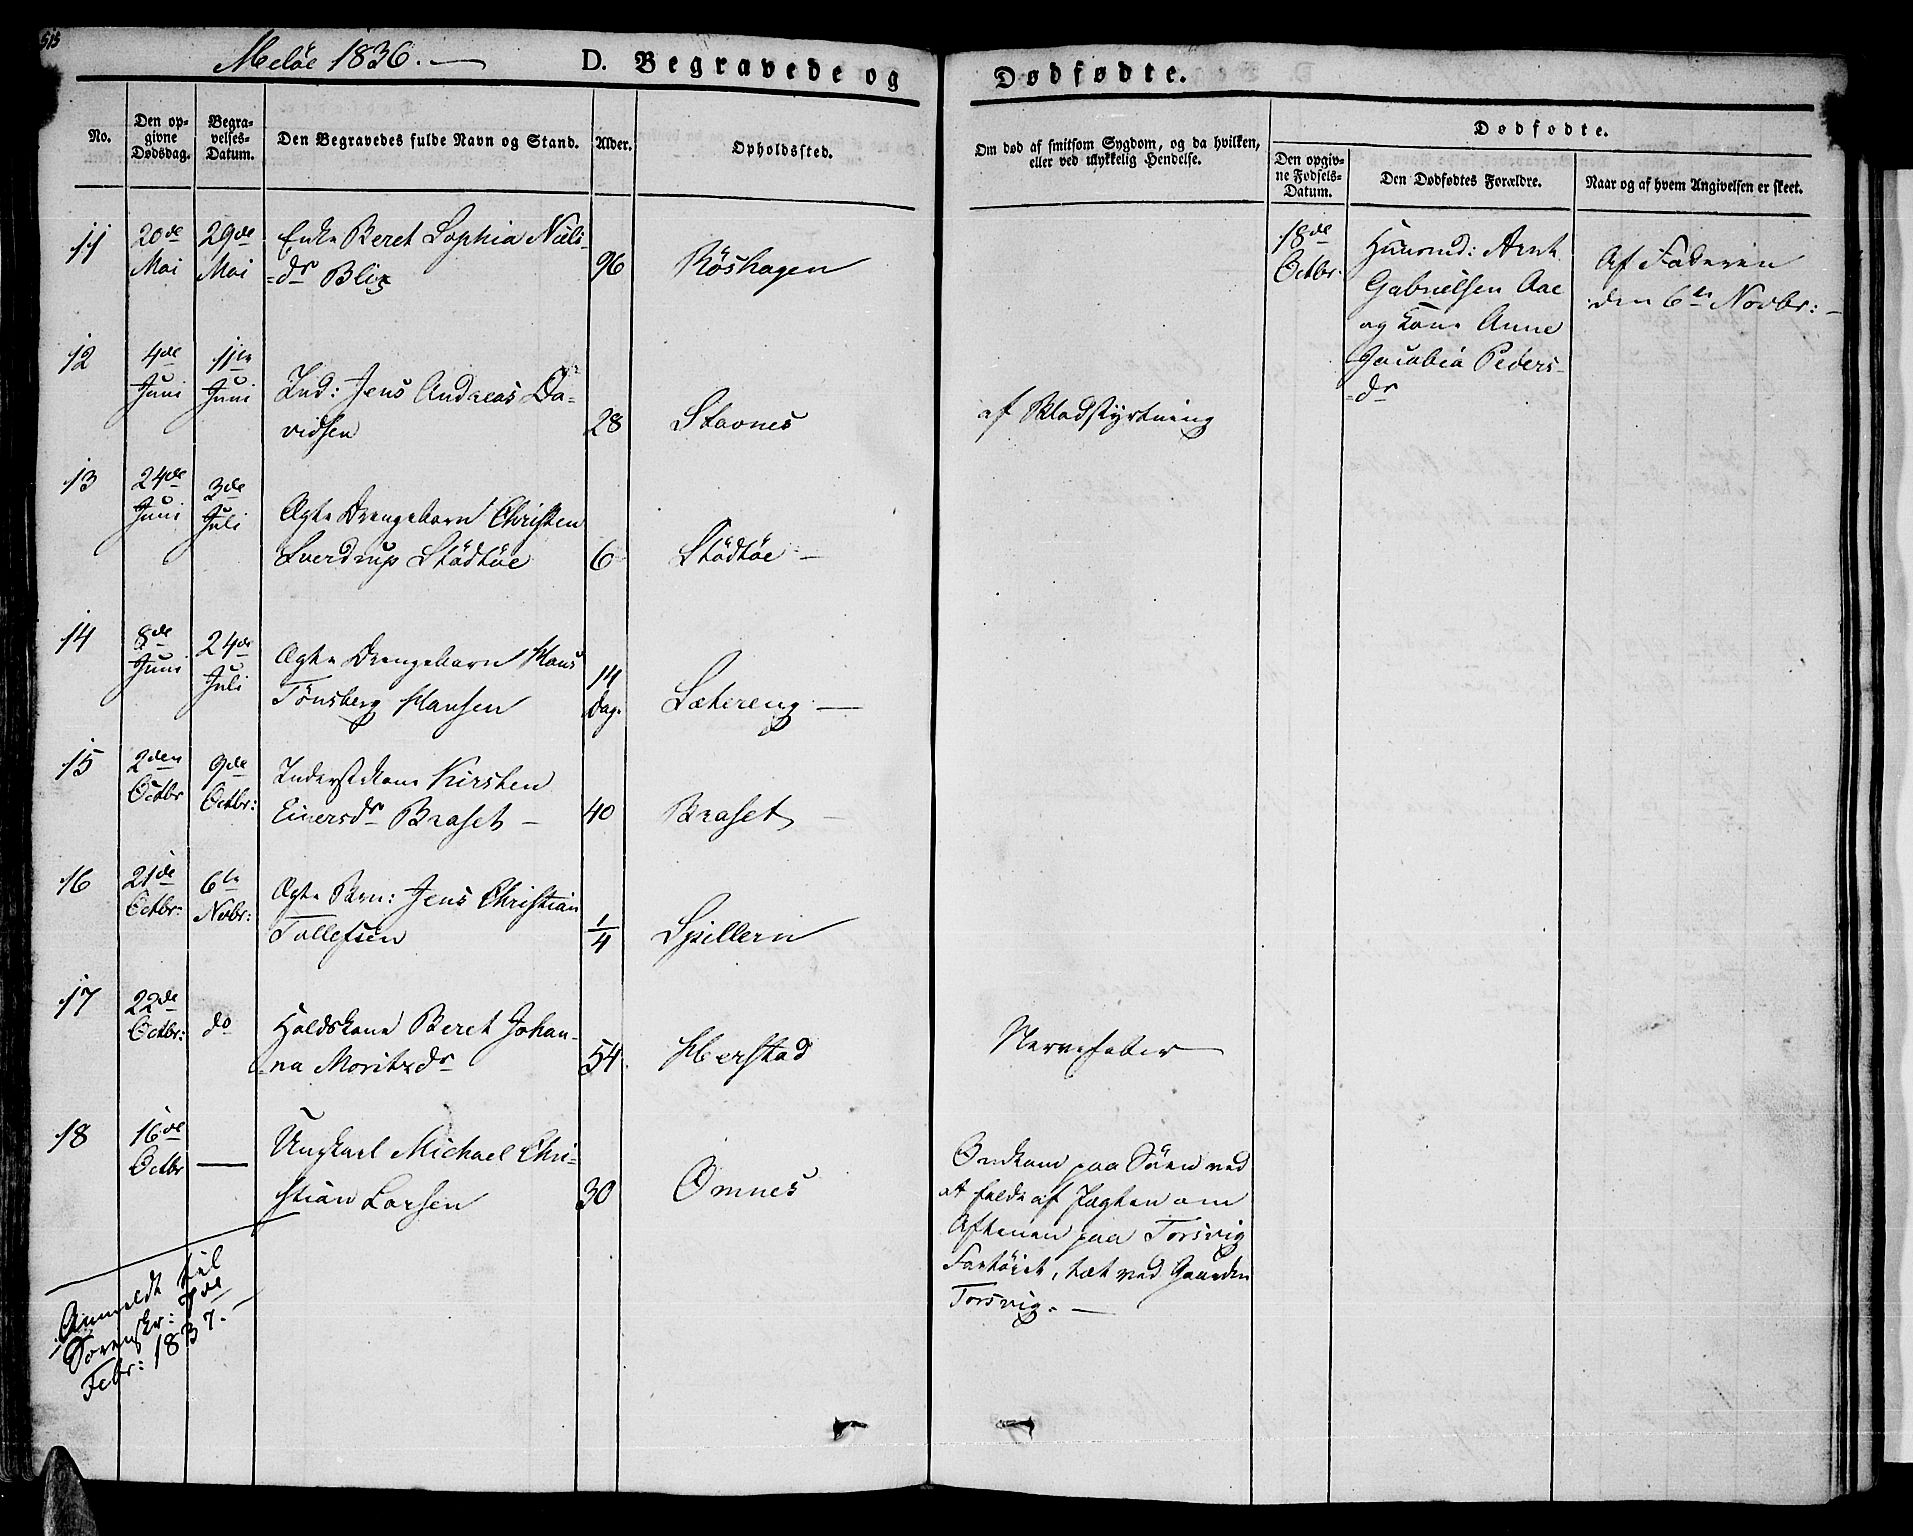 515
Meløe 1836. —
D. Begravede og
Dødfødte.
No.
Den opgivne Dødsdag.
Begravelses-Datum.
Den Begravedes fulde Navn og Stand.
Alder.
Opholdssted.
Om død af smitsom Sygdom, og da hvilken,
eller ved ulykkelig Hendelse.
Dødfødte.
Den opgivne Fødsels-Datum.
Den Dødfødtes Forældre.
Naar og af hvem Angivelsen er skeet.
11
20de Mai
29de Mai
Enke Beret Sophia Niels-
-dr Blix
96
Röshagen
18de Octbr:
Huusmd: Arnt
Gabrielsen Aae
og Kone Anne
Jacobia Peders-
-dr
Af Faderen
den 6te Novbr: —
12
4de Juni
11te Juni
Ind: Jens Andreas Da-
vidsen
28
Stavnes
af Bladstyrtning
13
24de Juni
3de Juli
Ægte Drengebarn Christen
Sverdrup Stödtöe
6
Stödtöe —
14
8de Juni
24de Juli
Ægte Drengebarn Hans
Tönsberg Hansen
14 Dag.
Sætereng —
15
2den Octbr
9de Octbr:
Inderstkone Kirsten
Einersdr Braset —
40
Braset —
16
21de Octbr:
6te Novbr:
Ægte Barn: Jens Christian
Tollefsen
1/4
Spilleren
17
22de Octbr:
do
Holdskone Beret Johan-
-na Moritzdr
54.
Herstad
Nervefeber —
18
16de Octbr
—
Ungkarl Michael Chri-
stian Larsen
30
Omnes
Omkom paa Söen ved
at falde af Jægten om
Aftenen paa Torsvig
Fartöiet, tæt ved Gaarden
Torsvig. —
Anmeldt til
Sorenskr: 7de
Febr: 1837. —